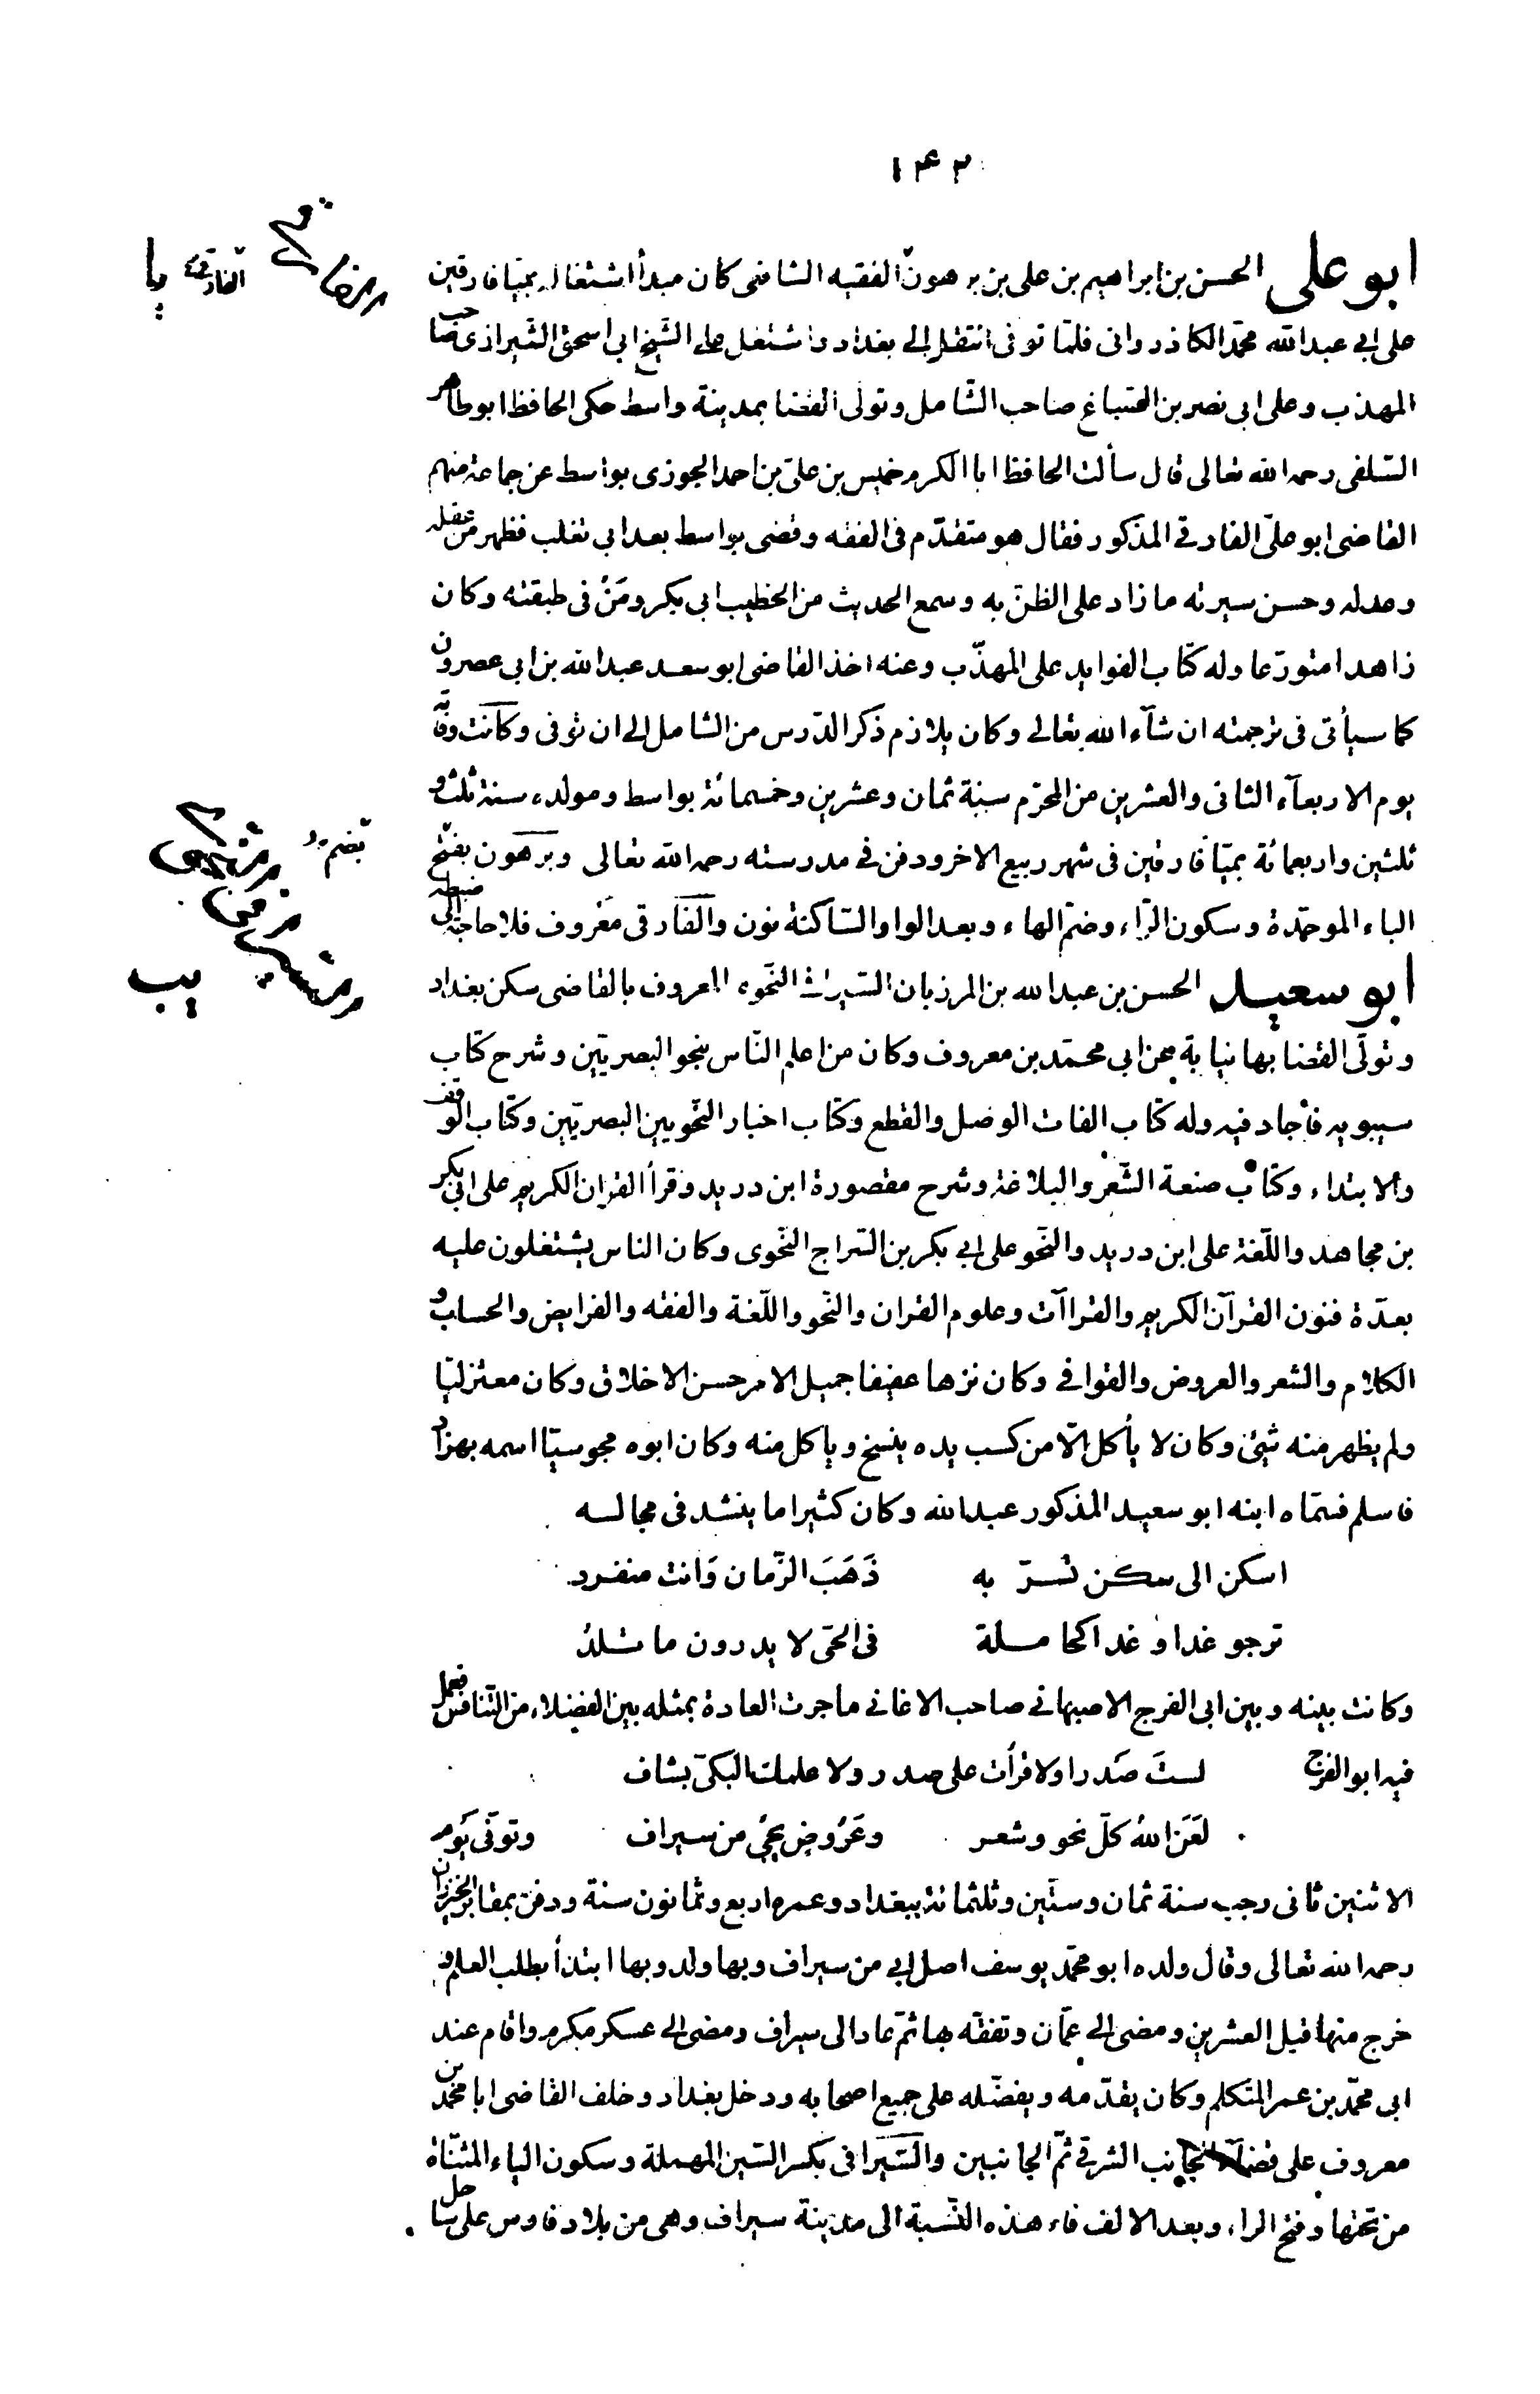 ١٤٢
ابو على الحسن بن ابراهيم بن على بن برهون الفقيه الشافعى كان مبدأ اشتغاله بميّافارقين
على ابى عبد الله محمّد الكاذروانى فلمّا توفى انتقل الى بغداد واشتغل على الشّيخ ابى اسحق الشّيرازى صاحب
المهذب وعلى ابى نصر بن الصّباغ صاحب الشّامل وتولى القضا بمدينة واسط حكى الحافظ ابو طاهر
السّلفى رحمه الله تعالى قال سألت الحافظ ابا الكرم خميس بن علىّ بن احمد الجوزى بواسط عن جماعة منهم
القاضى ابو علىّ الفارقى المذكور فقال هو متقدّم فى الفقه وقضى بواسط بعد ابى تغلب فظهر من عقله
وعدله وحسن سيرته ما زاد على الظنّ به وسمع الحديث من الخطيب ابى بكر ومَنْ فى طبقته وكان
زاهدا متورّعا وله كتاب الفوايد على المهذّب وعنه اخذ القاضى ابو سعد عبد الله بن ابى عصرون
كما سيأتى فى ترجمته ان شآء الله تعالى وكان يلازم ذكر الدّرس من الشامل الى ان توفى وكانت وفاته
يوم الاربعآء الثانى والعشرين من المحرّم سنة ثمان وعشرين وخمسمائة بواسط ومولده سنة ثلث و
ثلثين واربعمائة بميّافارقين فى شهر ربيع الاخر ودفن فى مدرسته رحمه الله تعالى وبرهون بفتح
الباء الموحّدة وسكون الرّاء وضمّ الهاء وبعد الواو السّاكنة نون والفارقى معروف فلا حاجة الى ضبطه
ابو سعيد الحسن بن عبد الله بن المرزبان السّيرافى النّحوى المعروف بالقاضى سكن بغداد
وتولّى القضا بها نيابة عن ابى محمّد بن معروف وكان من اعلم النّاس بنحو البصريّين وشرح كتاب
سيبويه فاجاد فيه وله كتاب الفات الوصل والقطع وكتاب اخبار النّحويين البصريّين وكتاب الوقف
والابتداء وكتاب صنعة الشّعر والبلاغة وشرح مقصورة ابن دريد وقرأ القران الكريم على ابى بكر
بن مجاهد واللّغة على ابن دريد والنّحو على ابى بكر بن السّراج النّحوى وكان الناس يشتغلون عليه
بعدّة فنون القرآن الكريم والقراآت وعلوم القران والنّحو واللّغة والفقه والفرايض والحساب و
الكلام والشعر والعروض والقوافى وكان نزها عفيفا جميل الامر حسن الاخلاق وكان معتزليّا
ولم يظهر منه شيئ وكان لا يأكل الّا من كسب يده ينسخ وياكل منه وكان ابوه مجوسيّا اسمه بهزاد
فاسلم فسمّاه ابنه ابو سعيد المذكور عبد الله وكان كثيرا ما ينشد فى مجالسه
اسكن الى سكن تسرّ به ذَهَبَ الزّمان وَانت منفرد
ترجو غدا وغدا كحاملة فى الحىّ لا يدرون ما تلدُ
وكانت بينه وبين ابى الفرج الاصبهانى صاحب الاغانى ما جرت العادة بمثله بين الفضلاء من التّنافس فعمل
فيه ابو الفرج لستَ صَدرا ولا قرأت على صدر ولا علمك البكىّ بشاف
لعَنَ اللهُ كلّ نحو وشعر وعَرُوض يجئُ من سيراف وتوفّى يَوم
الاثنين ثانى رجب سنة ثمان وستّين وثلثمائة ببغداد وعمره اربع وثمانون سنة ودفن بمقابر الخيزران
رحمه الله تعالى وقال ولده ابو محمّد يوسف اصل ابى من سيراف وبها ولد وبها ابتدأ بطلب العلم و
خرج منها قبل العشرين ومضى الى عمّان وتفقّه بها ثمّ عاد الى سيراف ومضى الى عسكر مكرم واقام عند
ابى محمّد بن عمر المتكلم وكان يقدّمه ويفضّله على جميع اصحابه ودخل بغداد وخلف القاضى ابا محمّد بن
معروف على قضآء الجانب الشرقى ثمّ الجانبين والسّيرافى بكسر السّين المهملة وسكون الياء المثنّاة
من تحتها وفتح الراء وبعد الالف فاء هذه النّسبة الى مدينة سيراف وهى من بلاد فارس على ساحل
الفارقى
يا
يب